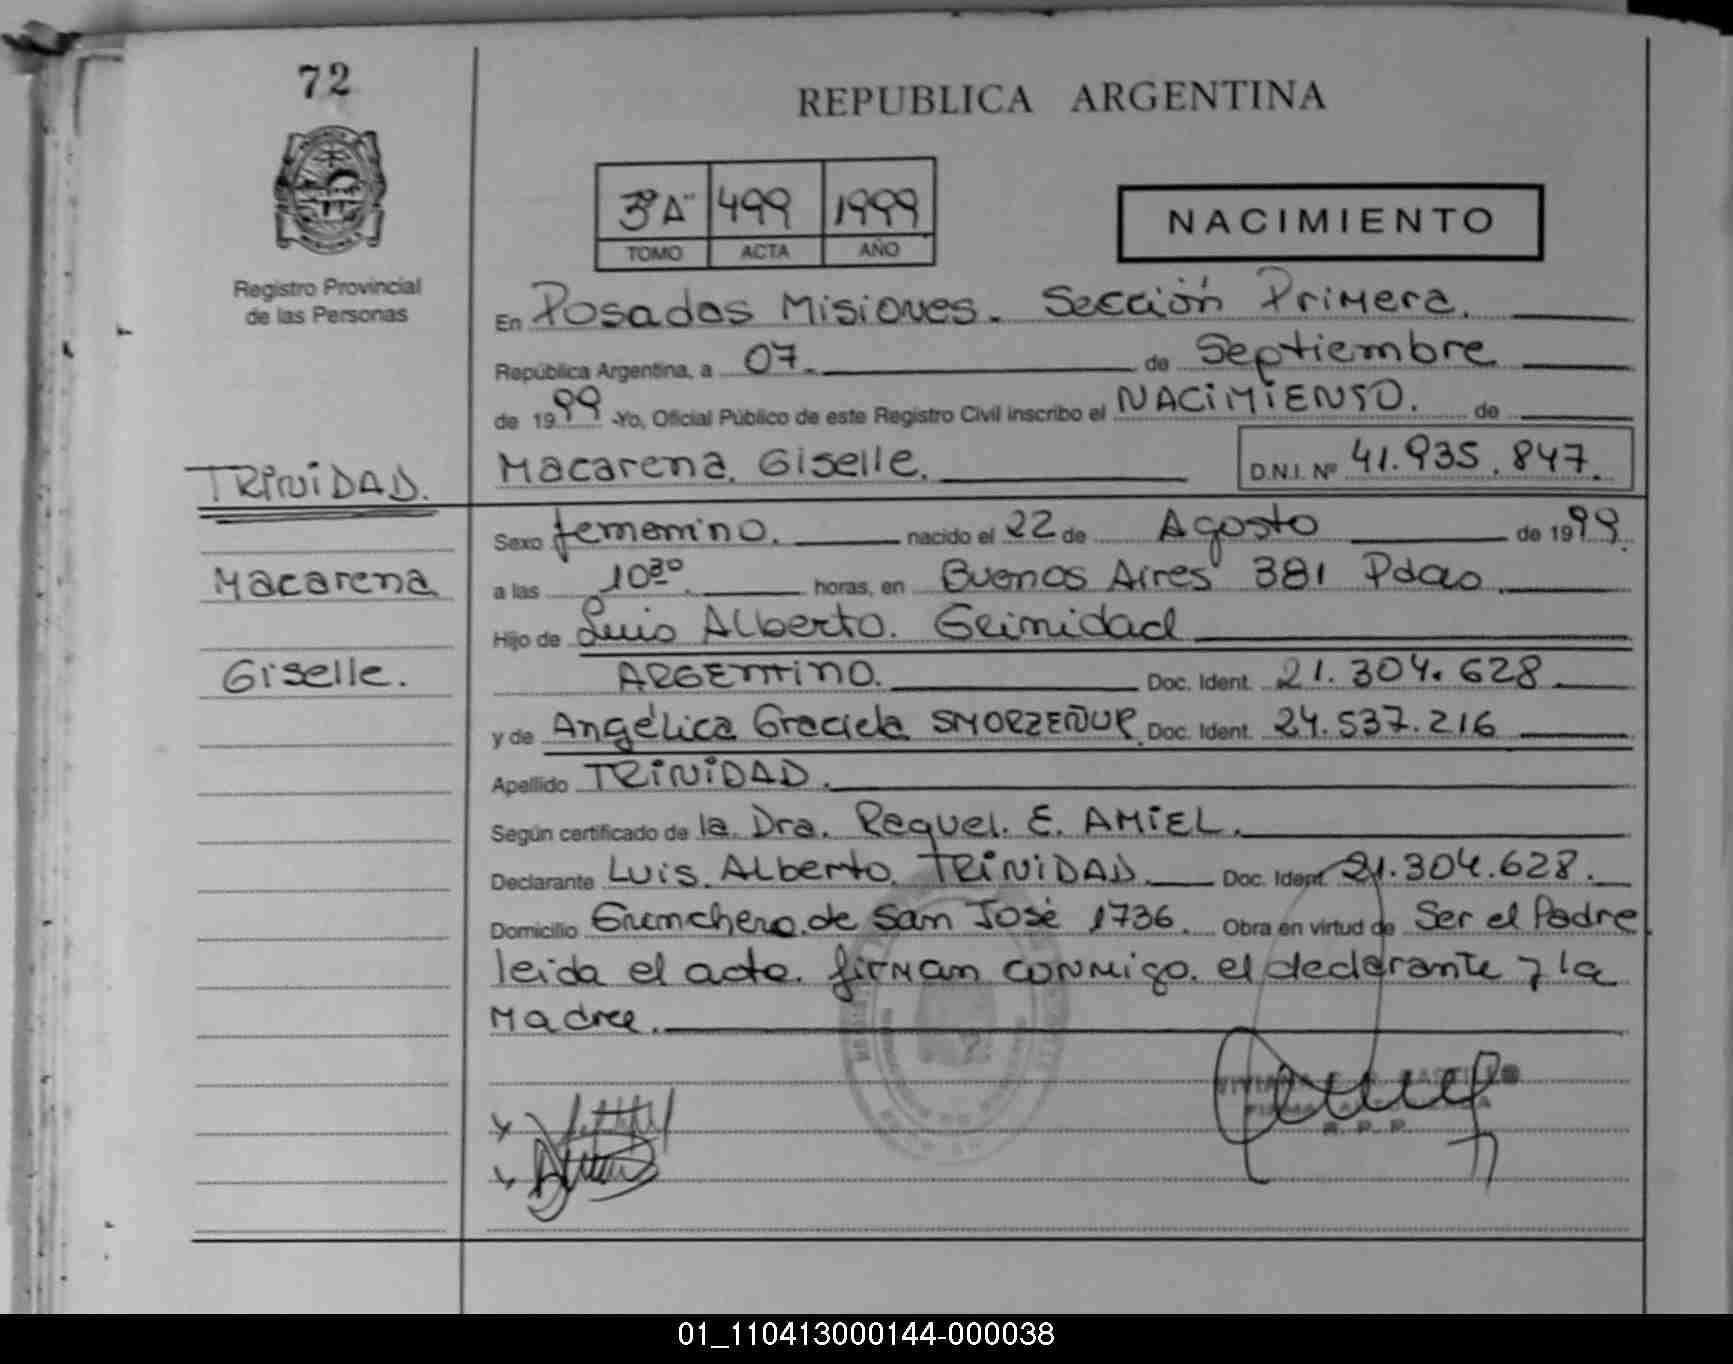 72
REPUBLICA ARGENTINA
Registro Provincial
de las Personas
3º"A" 499 1999
TOMO ACTA AÑO
NACIMIENTO
En Posadas Misiones. Sección Primera.
República Argentina, a 07. de Septiembre
de 1999 -Yo, Oficial Público de este Registro Civil inscribo el NACIMIENTO. de
Macarena. Giselle. D.N.I. Nº 41.935.847.
TRINIDAD.
Macarena
Giselle.
Sexo femenino. nacido el 22 de Agosto de 1999.
a las 10³⁰. horas, en Buenos Aires 381 Pdas.
Hijo de Luis Alberto. Trinidad
ARGENTINO. Doc. Ident. 21.304.628
y de Angélica Graciela Doc. Ident. 24.537.216
Apellido TRINIDAD.
Según certificado de la. Dra. Raquel. E. AMIEL.
Declarante Luis. Alberto. TRINIDAD. Doc. Ident. 21.304.628.
Domicilio de San José 1736. Obra en virtud de Ser el Padre
leida el acta. firman conmigo. el declarante y la
Madre.
R. P. P.
01_110413000144-000038